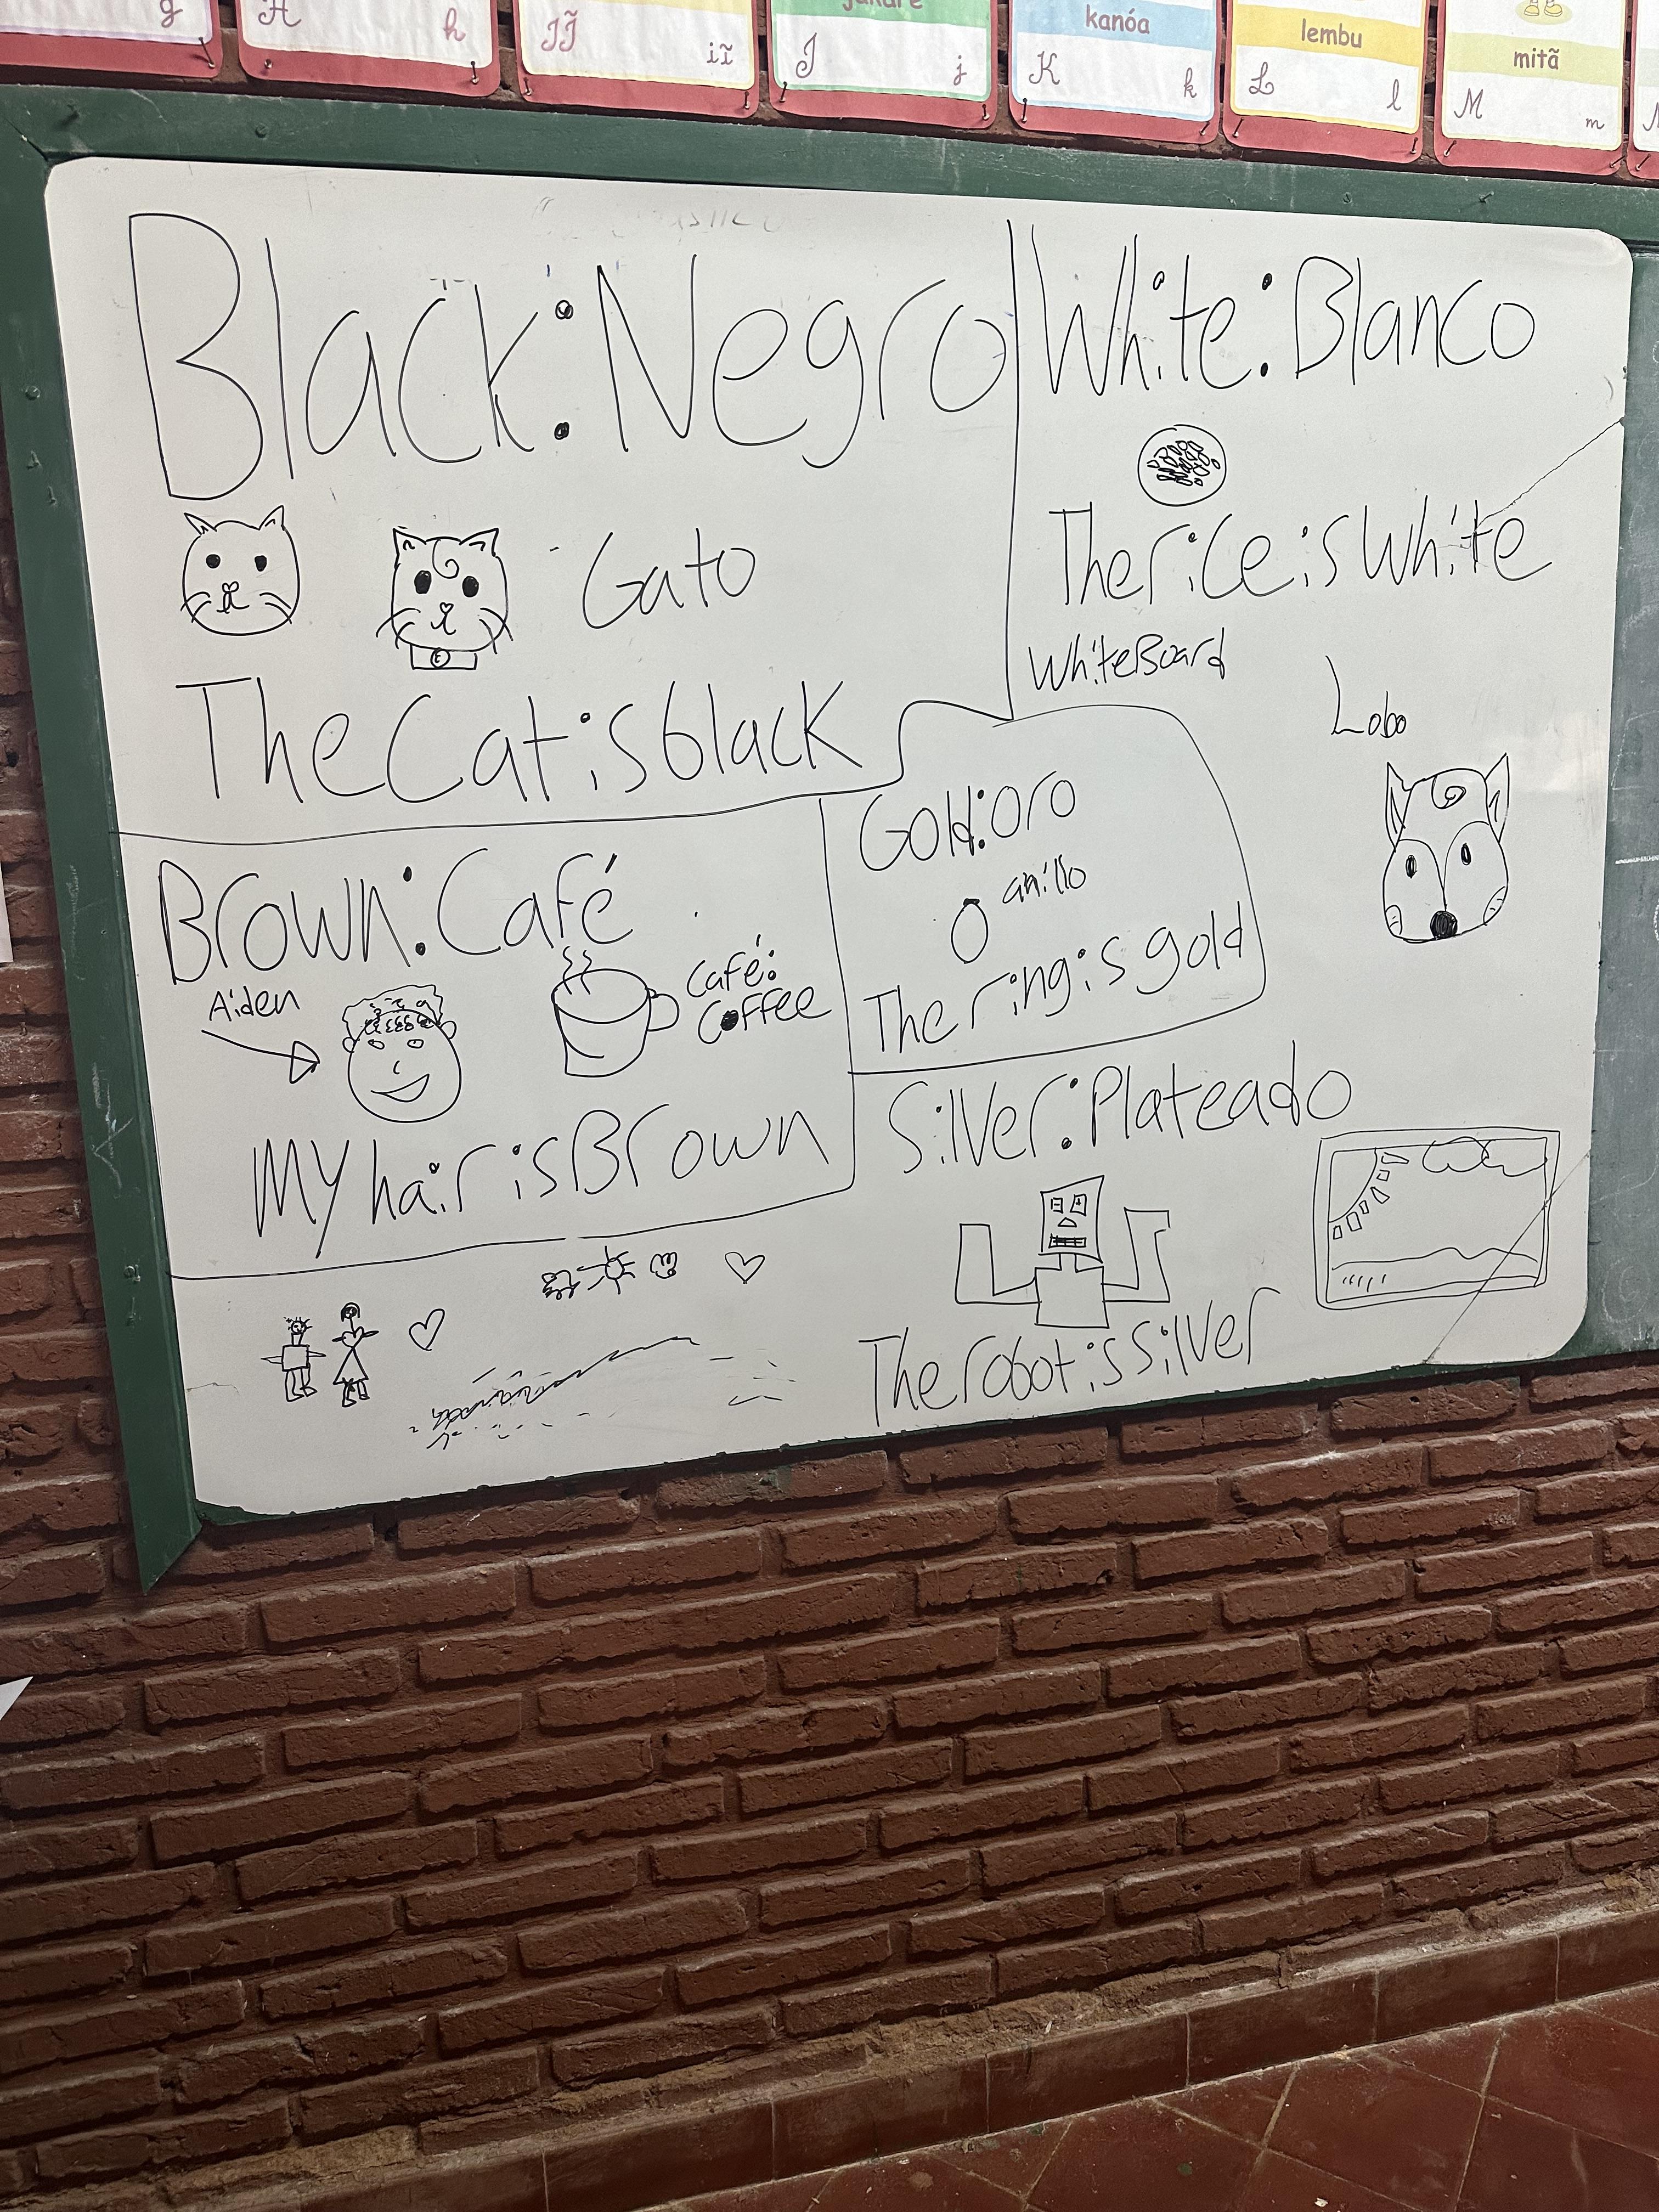 g
H h
IĨ iĩ
jakare
J j
kanóa
K k
lembu
L l
mitã
M m
Black: Negro
Gato
The Cat is black
White: Blanco
The rice is White
WhiteBoard
Lobo
Brown: Café
Aiden
Café:
Coffee
My hair is Brown
Gold: oro
anillo
The ring is gold
Silver: Plateado
The robot is Silver